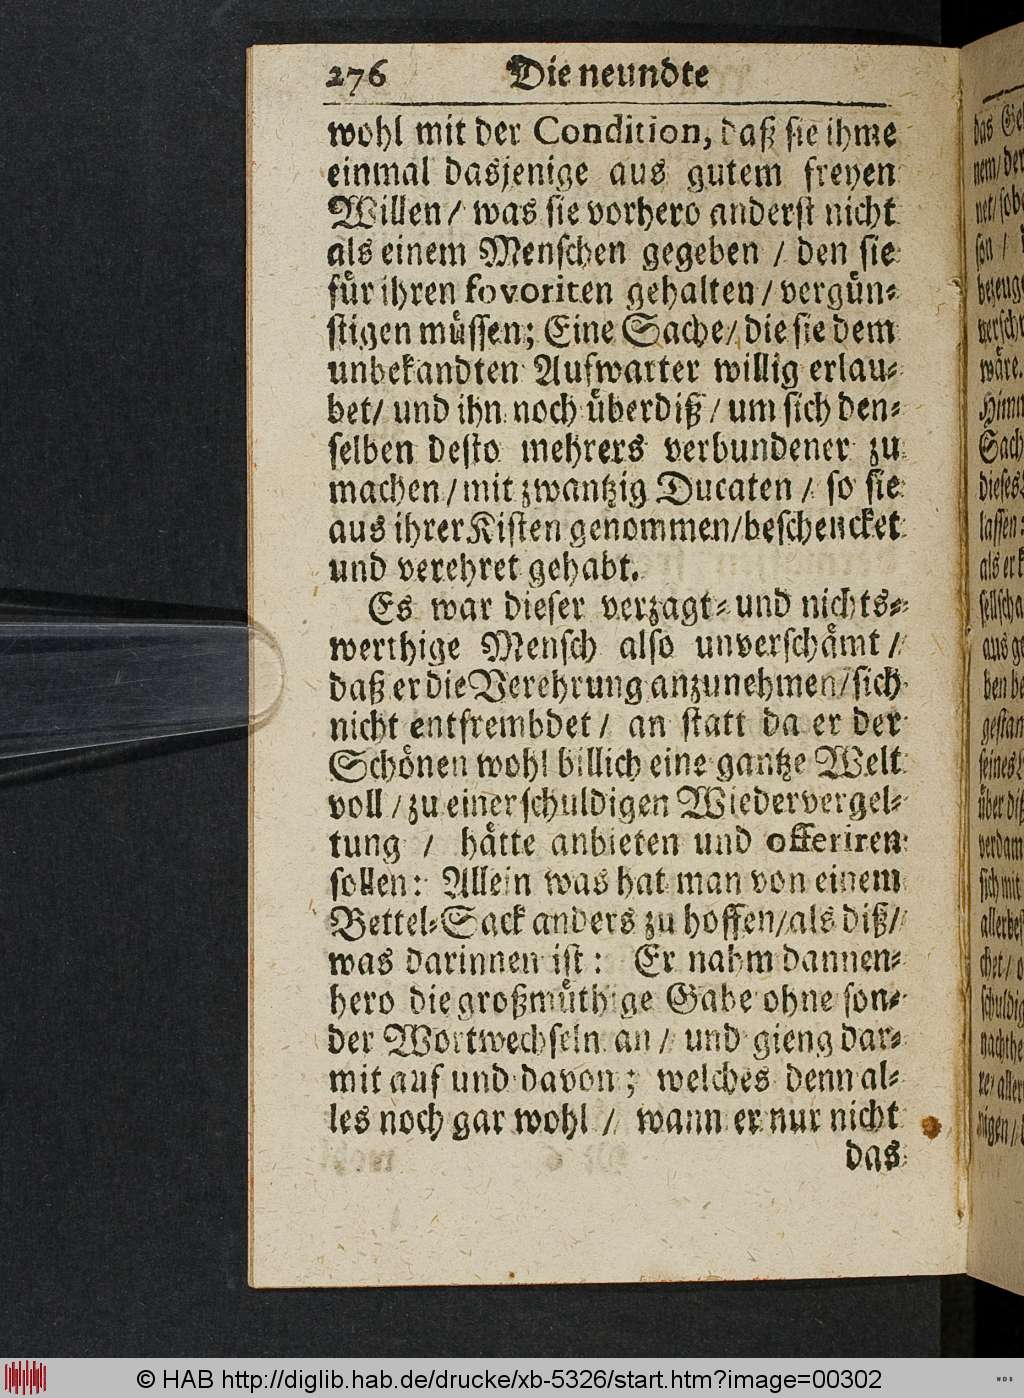 276 Die neundte
wohl mit der Condition, daß sie ihme
einmal dasjenige aus gutem freyen
Willen / was sie vorhero anderst nicht
als einem Menschen gegeben / den sie
für ihren fovoriten gehalten / vergün-
stigen müssen; Eine Sache / die sie dem
unbekandten Aufwarter willig erlau-
bet / und ihn noch überdiß / um sich den-
selben desto mehrers verbundener zu
machen / mit zwantzig Ducaten / so sie
aus ihrer Kisten genommen / beschencket
und verehret gehabt.
Es war dieser verzagt- und nichts-
werthige Mensch also unverschämt /
daß er die Verehrung anzunehmen / sich
nicht entfrembdet / an statt da er der
Schönen wohl billich eine gantze Welt
voll / zu einer schuldigen Wiedervergel-
tung / hätte anbieten und offeriren
sollen: Allein was hat man von einem
Bettel-Sack anders zu hoffen / als diß /
was darinnen ist: Er nahm dannen-
hero die großmüthige Gabe ohne son-
der Wortwechseln an / und gieng dar-
mit auf und davon; welches denn al-
les noch gar wohl / wann er nur nicht
das
das
nem / der
net / 
son /
wäre.
Sach
lassen:
aus
© HAB http://diglib.hab.de/drucke/xb-5326/start.htm?image=00302